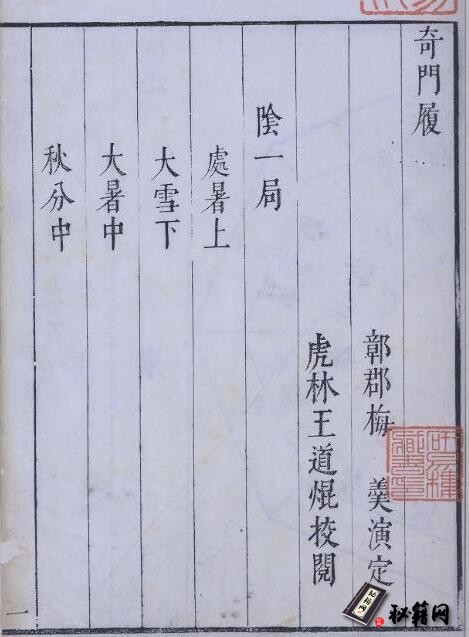 奇門履
鄣郡梅　羮演定
虎林王道焜校閱
陰一局
處暑上
大雪下
大暑中
秋分中
一
秘籍网